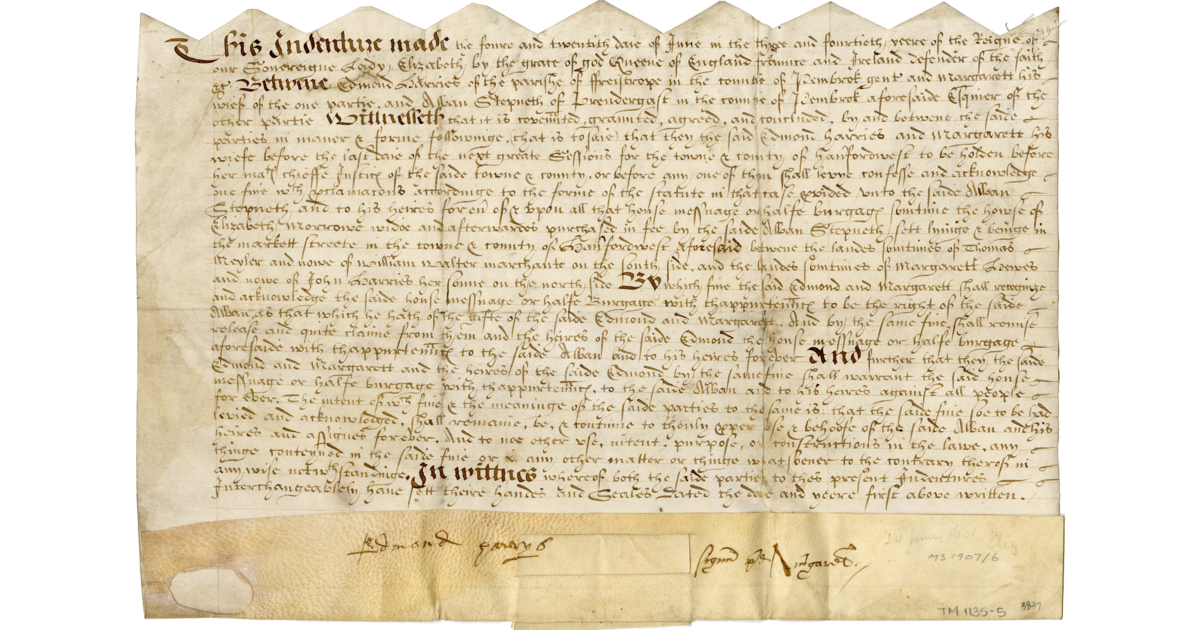 This Indenture made the foure and twentith daie of June in the three and fortieth yeere of the Reigne of
our Sovereigne Ladye Elizabeth by the grace of god Queene of England fraunce and Ireland defender of the faith
&c Betwene Edmond Harries of the parishe of ffreistrope in the countie of Pembrok gent and Margarett his
wief of the one partie, and Alban Stepneth of Prendergast in the countie of Pembrok aforesaide Esquier of the
other partie Wittnesseth that it is covenńted, graunted, agreed, and concluded, by and betwene the saide
parties in maner & forme followinge, that is to saie, that they the said Edmond Harries and Margarett his
wiefe before the last daie of the next greate Sessions for the towne & county of Haufordwest to be holden before
her maties chieffe Justice of the saide towne & county, or before any one of them shall levye confesse and acknowledge
one fine wth pclamacons accordinge to the forme of the statute in that case pvided vnto the saide Alban
Stepneth and to his heires of & vpon all that house messuage or halfe burgage somtime the howse of
Elizabeth Morrowe widoe and afterwardes purchased in fee by the saide Alban Stepneth sett lyinge & beinge in
the markett streete in the towne & county of Hauffordwest aforesaid betwene the landes somtimes of Thomas
Meyler and nowe of William Walter marchante on the south side, and the landes somtimes of Margarett Lewes
and nowe of John Harries her sonne on the north side By which fine the said Edmond and Margarett shall recognize
and acknowledge the saide house messuage or halfe Burgage with thappurtenńces to be the right of the saide
Alban, as that which he hath of the gifte of the saide Edmond and Margarett, And by the same fine shall remise
release and quite claime from them and the heires of the saide Edmond the house messuage or halfe burgage
aforesaide with thappurtenńces to the saide Alban and to his heires forever And further that they the saide
Edmond and Margarett and the heires of the saide Edmond by the same fine shall warrant the said house
messuage or halfe burgage with thappurtenńces, to the saide Alban and to his heires against all people
for Ever. The intent of wch fine & the meaninge of the saide parties to the same is, that the saide fine soe to be had
levied and acknowledged, shall remaine, be, & contynue to thonly pper vse & behoofe of the saide Alban and his
heires and assignes for ever, And to noe other vse, intent, purpose, or constructions in the lawe, any
thinge conteyned in the saide fine or any other matter or thinge whatsoever to the contrary therof in
any wise notwthstandinge. In wittnes whereof both the saide parties to thes present Indentures
Interchangeablely have sett theire handes and Seales Dated the daie and yeere first above written.
Edmand harrys
signum pred Margarett
24 June
MS 1907/6
TM 1135-5 3871